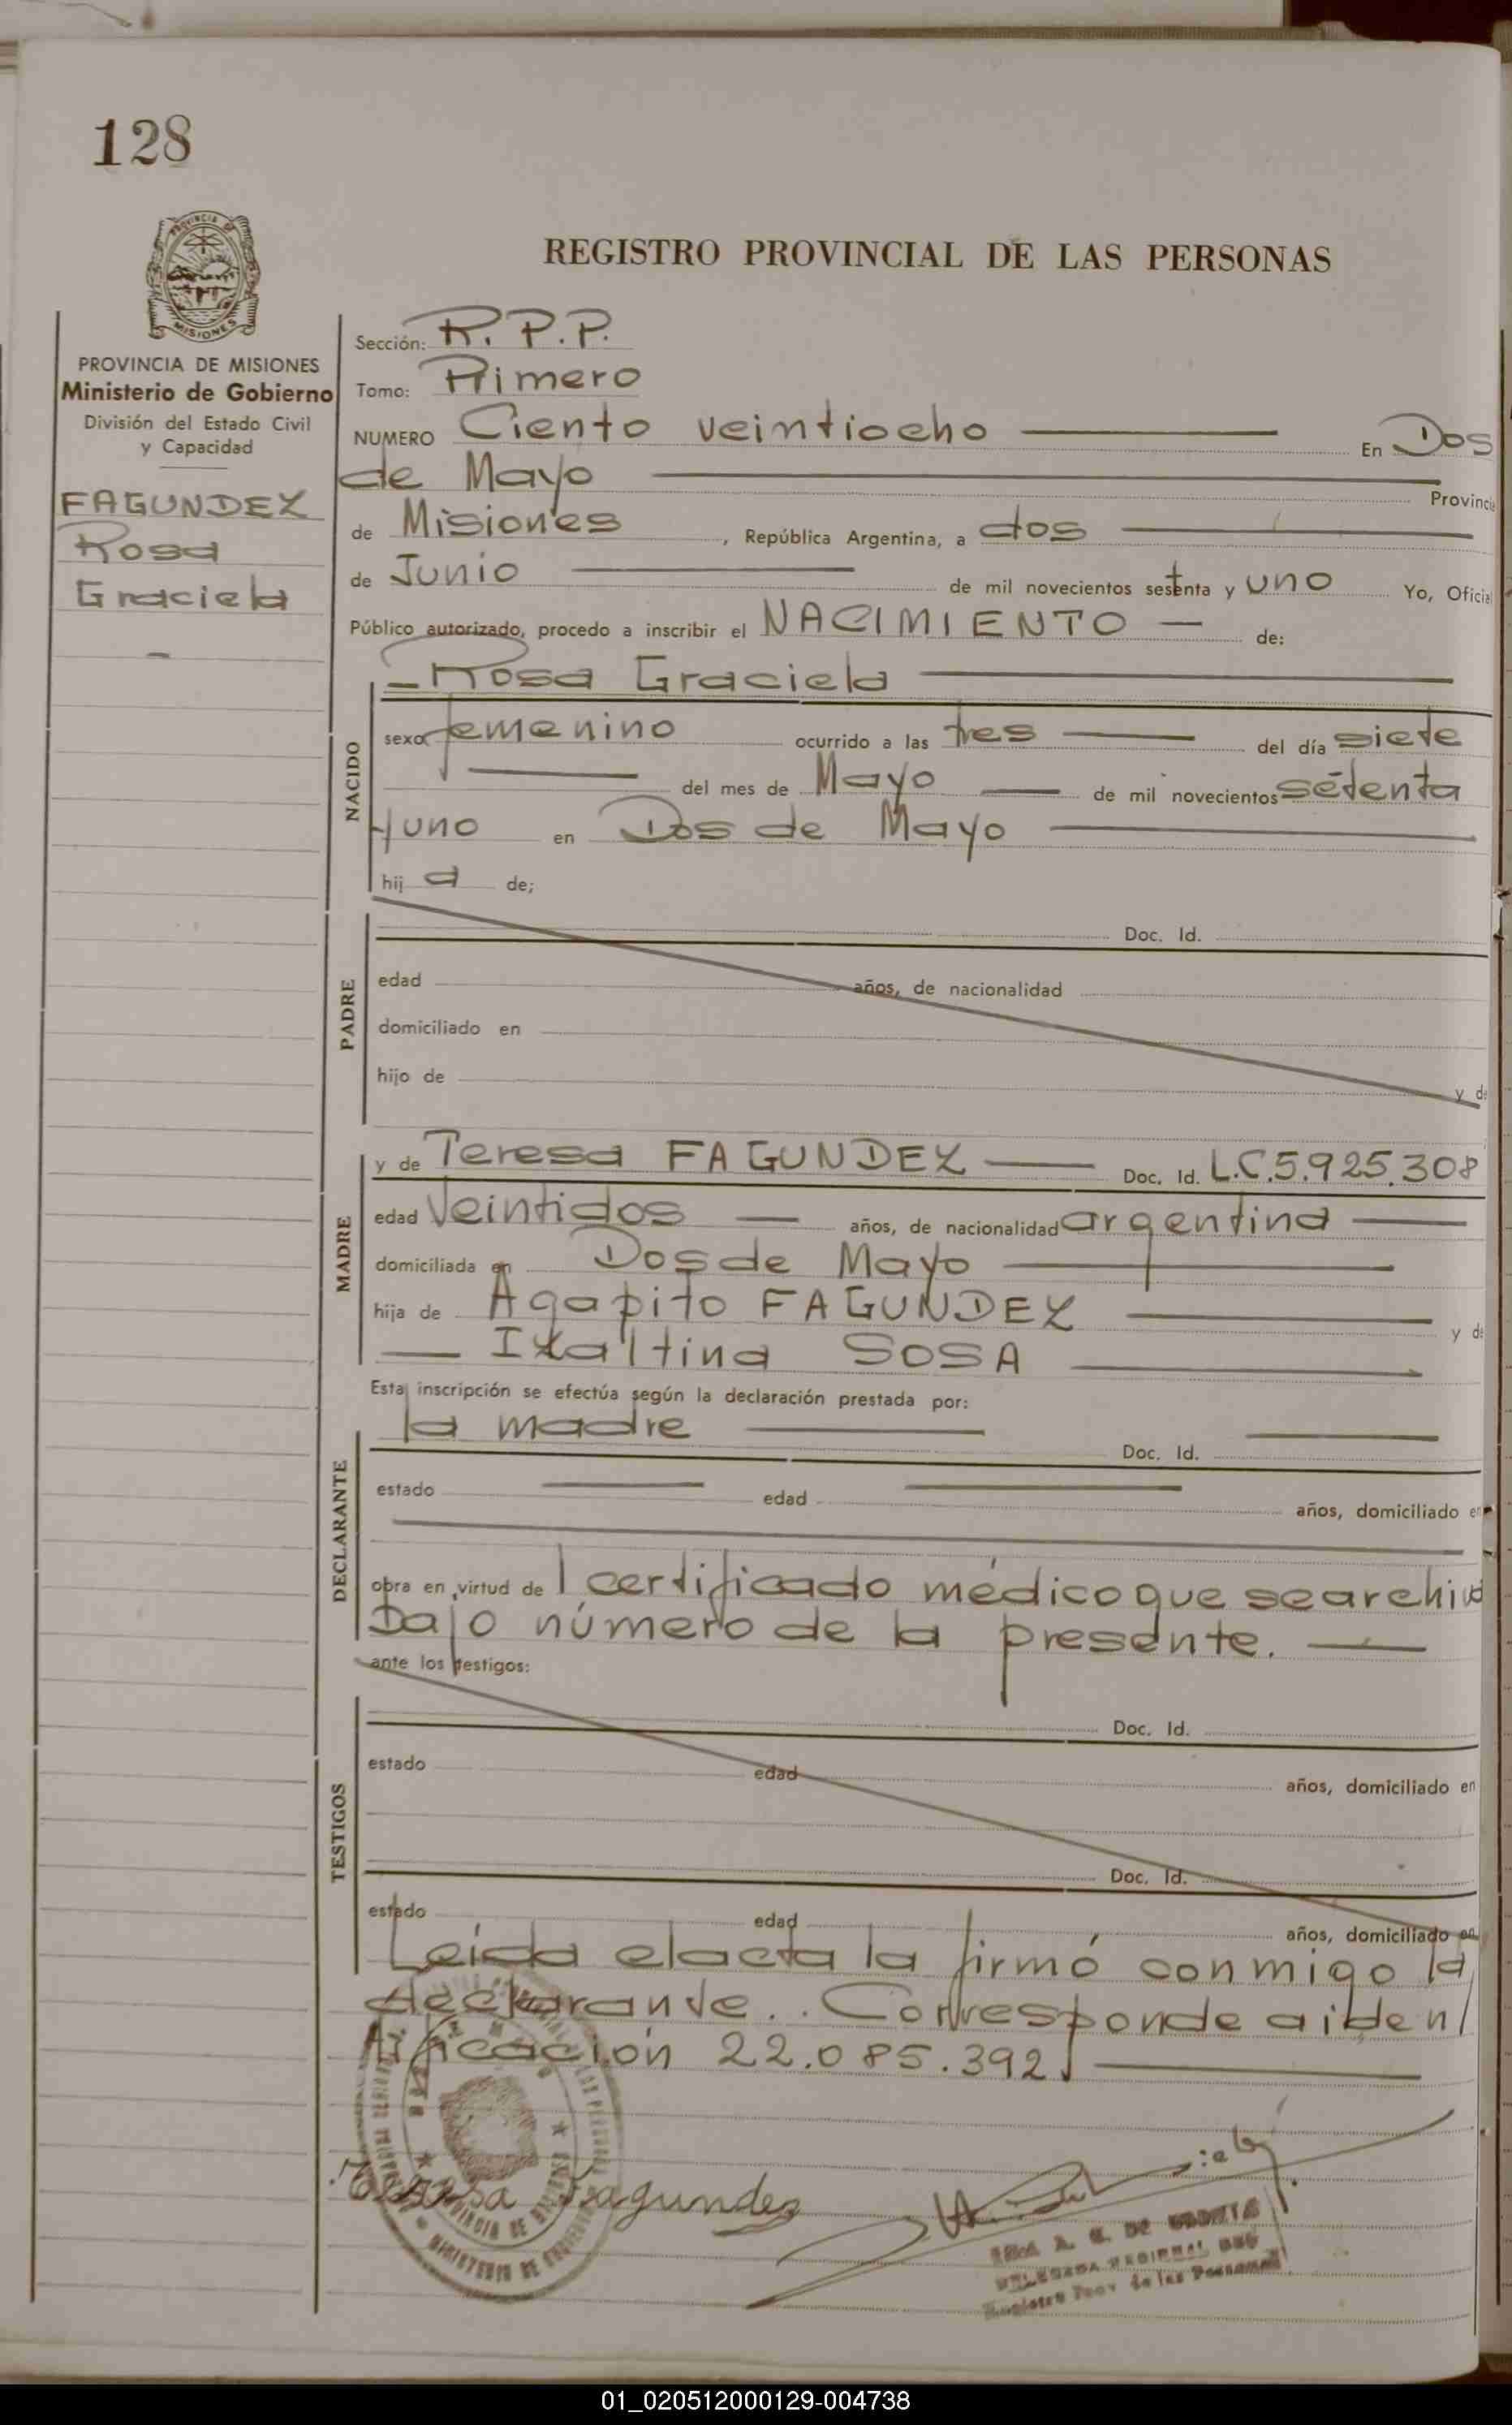 128
PROVINCIA DE
MISIONES
REGISTRO PROVINCIAL DE LAS PERSONAS
PROVINCIA DE MISIONES
Ministerio de Gobierno
División del Estado Civil
y Capacidad
FAGUNDEZ
Rosa
Graciela
Sección: R.P.P.
Tomo: Primero
NUMERO Ciento veintiocho En Dos
de Mayo Provincia
de Misiones, República Argentina, a dos
de Junio de mil novecientos setenta y uno Yo, Oficial
Público autorizado, procedo a inscribir el NACIMIENTO de:
Rosa Graciela
NACIDO
sexo femenino ocurrido a las tres del día siete
del mes de Mayo de mil novecientos setenta
y uno en Dos de Mayo
hij a de;
PADRE
Doc. Id.
edad años, de nacionalidad
domiciliado en
hijo de y de
MADRE
y de Teresa FAGUNDEZ Doc. Id. L.C.5.925.308
edad Veintidos años, de nacionalidad argentina
domiciliada en Dos de Mayo
hija de Agapito FAGUNDEZ y de
Ixaltina SOSA
Esta inscripción se efectúa según la declaración prestada por:
DECLARANTE
la madre Doc. Id.
estado edad años, domiciliado en
obra en virtud de l certificado médico que se archiva
bajo número de la presente.
ante los testigos:
TESTIGOS
Doc. Id.
estado edad años, domiciliado en
Doc. Id.
estado edad años, domiciliado en
Leída el acta la firmó conmigo la
declarante.. Corresponde a iden/
tificación 22.085.392
Teresa Fagundez
DELEGADA REGIONAL
Registro Prov de las Personas
01_020512000129-004738